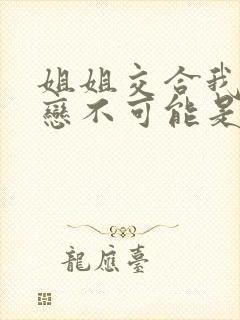 姐姐交合我
戀不可能是
龍應臺